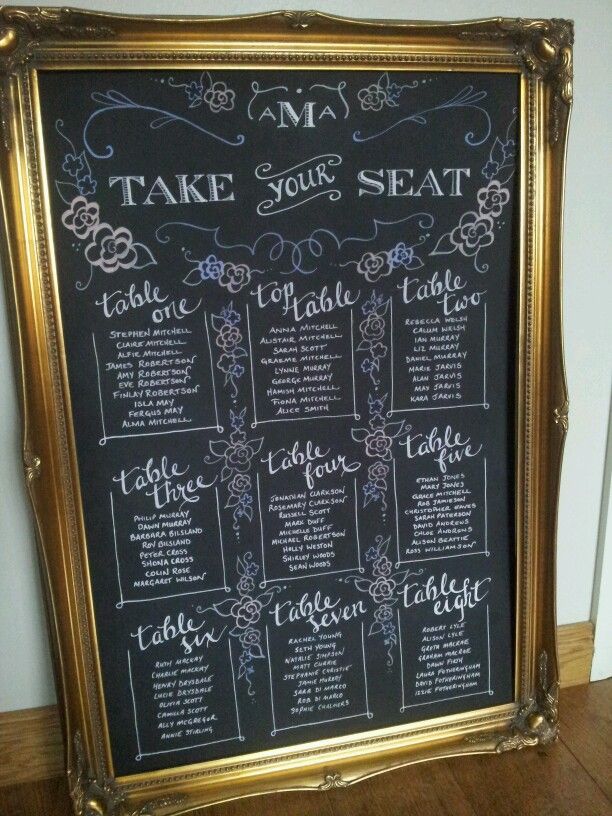 AMA
TAKE YOUR SEAT
table one
STEPHEN MITCHELL
CLAIRE MITCHELL
ALFIE MITCHELL
JAMES ROBERTSON
AMY ROBERTSON
EVE ROBERTSON
FINLAY ROBERTSON
ISLA MAY
FERGUS MAY
ALMA MITCHELL
top table
ANNIA MITCHELL
ALISTAIR MITCHELL
SARAH SCOTT
GRAEME MITCHELL
LYNNE MURRAY
GEORGE MURRAY
HAMISH MITCHELL
FIONA MITCHELL
ALICE SMITH
table two
REBECCA WELSH
CALUM WELSH
IAN MURRAY
LIZ MURRAY
DANIEL MURRAY
MARIE JARVIS
ALAN JARVIS
MAY JARVIS
KARA JARVIS
table three
PHILIP MURRAY
DAWN MURRAY
BARBARA BILSLAND
ROY BILSLAND
PETER CROSS
SHONA CROSS
COLIN ROSE
MARGARET WILSON
table four
JONATHAN CLARKSON
ROSEMARY CLARKSON
RUSSELL SCOTT
MARK DUFF
MICHELLE DUFF
MICHAEL ROBERTSON
HOLLY WESTON
SHIRLEY WOODS
SEAN WOODS
table five
ETHAN JONES
MARY JONES
GRACE MITCHELL
ROB JAMIESON
CHRISTOPHER EAVES
SARAH PATERSON
DAVID ANDREWS
CHLOE ANDREWS
ALISON BEATTIE
ROSS WILLIAMSON
table six
RUTH MACKAY
CHARLIE MACKAY
HENRY DRYSDALE
LUCIE DRYSDALE
OLIVIA SCOTT
CAMILLA SCOTT
ALLY MCGREGOR
ANNIE STIRLING
table seven
RACHEL YOUNG
SETH YOUNG
NATALIE SIMPSON
MATT CURRIE
STEPHANIE CHRISTIE
JAMIE MURRAY
SARA DI MARCO
ROB DI MARCO
SOPHIE CHALMERS
table eight
ROBERT LYLE
ALISON LYLE
GRETA MACRAE
GRAHAM MACRAE
DAWN FIRTH
LAURA FOTHERINGHAM
DAVID FOTHERINGHAM
IZZIE FOTHERINGHAM